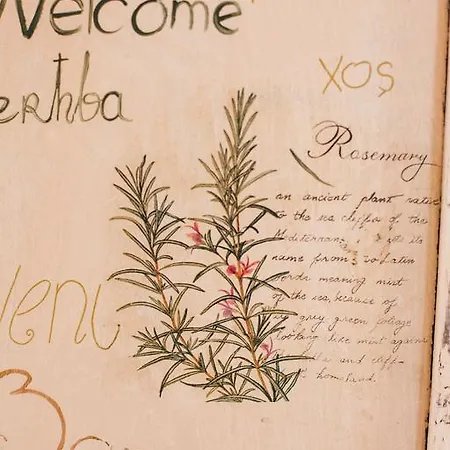 Welcome
erhba
xoş
Rosemary
an ancient plant native
to the sea cliffs of the
its
name from Latin
words meaning mist
of the sea, because of
grey green foliage
looking like mist against
and cliff
homeland.